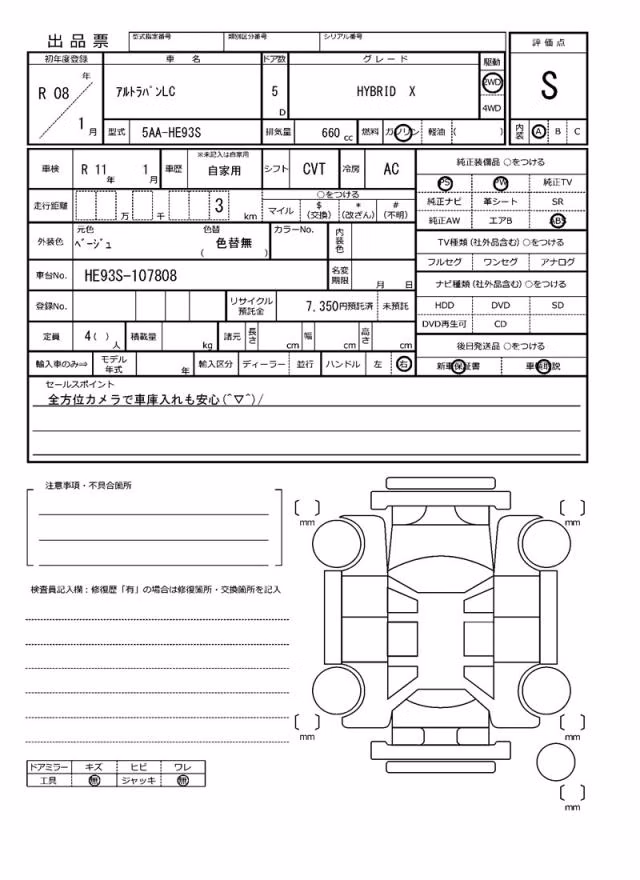 出品票
型式指定番号 類別区分番号 シリアル番号
初年度登録 車 名 ドア数 グレード 駆動 評価点
R 08 年 1 月 アルトラパンLC 5 D HYBRID X 2WD 4WD S
型式 5AA-HE93S 排気量 660 cc 燃料 ガソリン 軽油 ( ) 内装 A B C
車検 R 11 年 1 月 車歴 ※未記入は自家用 自家用 シフト CVT 冷房 AC
純正装備品 ○をつける
PS PW 純正TV
純正ナビ 革シート SR
純正AW エアB ABS
走行距離 万 千 3 km ○をつける マイル $ (交換) * (改ざん) # (不明)
外装色 元色 ベージュ 色替 色替無 ( ) カラーNo. 内装色
TV種類 (社外品含む) ○をつける
フルセグ ワンセグ アナログ
車台No. HE93S-107808 名変期限 月 日
ナビ種類 (社外品含む) ○をつける
HDD DVD SD
DVD再生可 CD
登録No. リサイクル預託金 7,350円預託済 未預託
定員 4 ( ) 人 積載量 kg 諸元 長さ cm 幅 cm 高さ cm
後日発送品 ○をつける
新車保証書 車輌取説
輸入車のみ⇒ モデル年式 年 輸入区分 ディーラー 並行 ハンドル 左 右
セールスポイント
全方位カメラで車庫入れも安心(^▽^)/
注意事項・不具合箇所
検査員記入欄:修復歴「有」の場合は修復箇所・交換箇所を記入
mm mm
mm mm
mm
ドアミラー キズ ヒビ ワレ
工具 無 ジャッキ 無